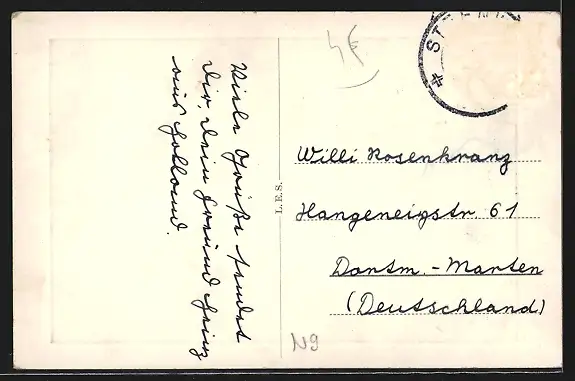 Viele Grüße sendet
Dir, Dein Freund Heinz
aus Holland.
L.E.S.
Willi Rosenkranz
Hangeneigstr. 61
Dortm.-Marten
(Deutschland)
N9